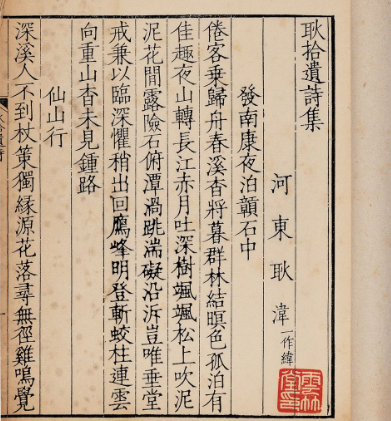 耿拾遺詩集
河東耿湋一作緯
發南康夜泊贛石中
倦客乘歸舟春溪杳將暮群林結暝色孤泊有
佳趣夜山轉長江赤月吐深樹颯颯松上吹泥
泥花間露險石俯潭渦跳湍礙沿泝豈唯垂堂
戒兼以臨深懼稍出回鷹峰明登斬蛟柱連雲
向重山杳未見鍾路
仙山行
深溪人不到杖策獨緣源花落尋無徑雞鳴覺